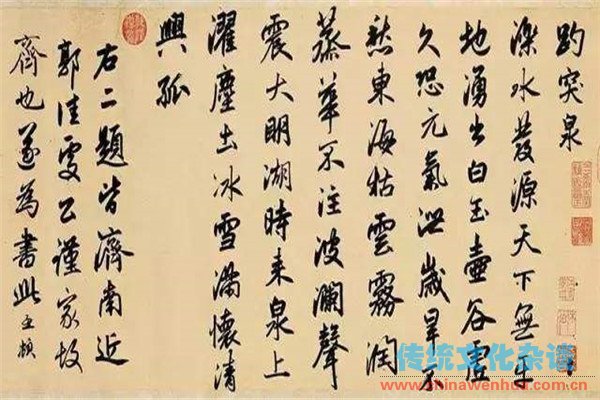 趵突泉
濼水發源天下無平
地湧出白玉壺谷虛
久恐元氣泄歲旱不
愁東海枯雲霧潤
蒸華不注波瀾聲
震大明湖時来泉上
濯塵土冰雪滿懷清
興孤
右二題皆濟南近
郭佳處公謹家故
齊也遂為書此孟頫
传统文化杂谭
www.chinawenhua.com.cn